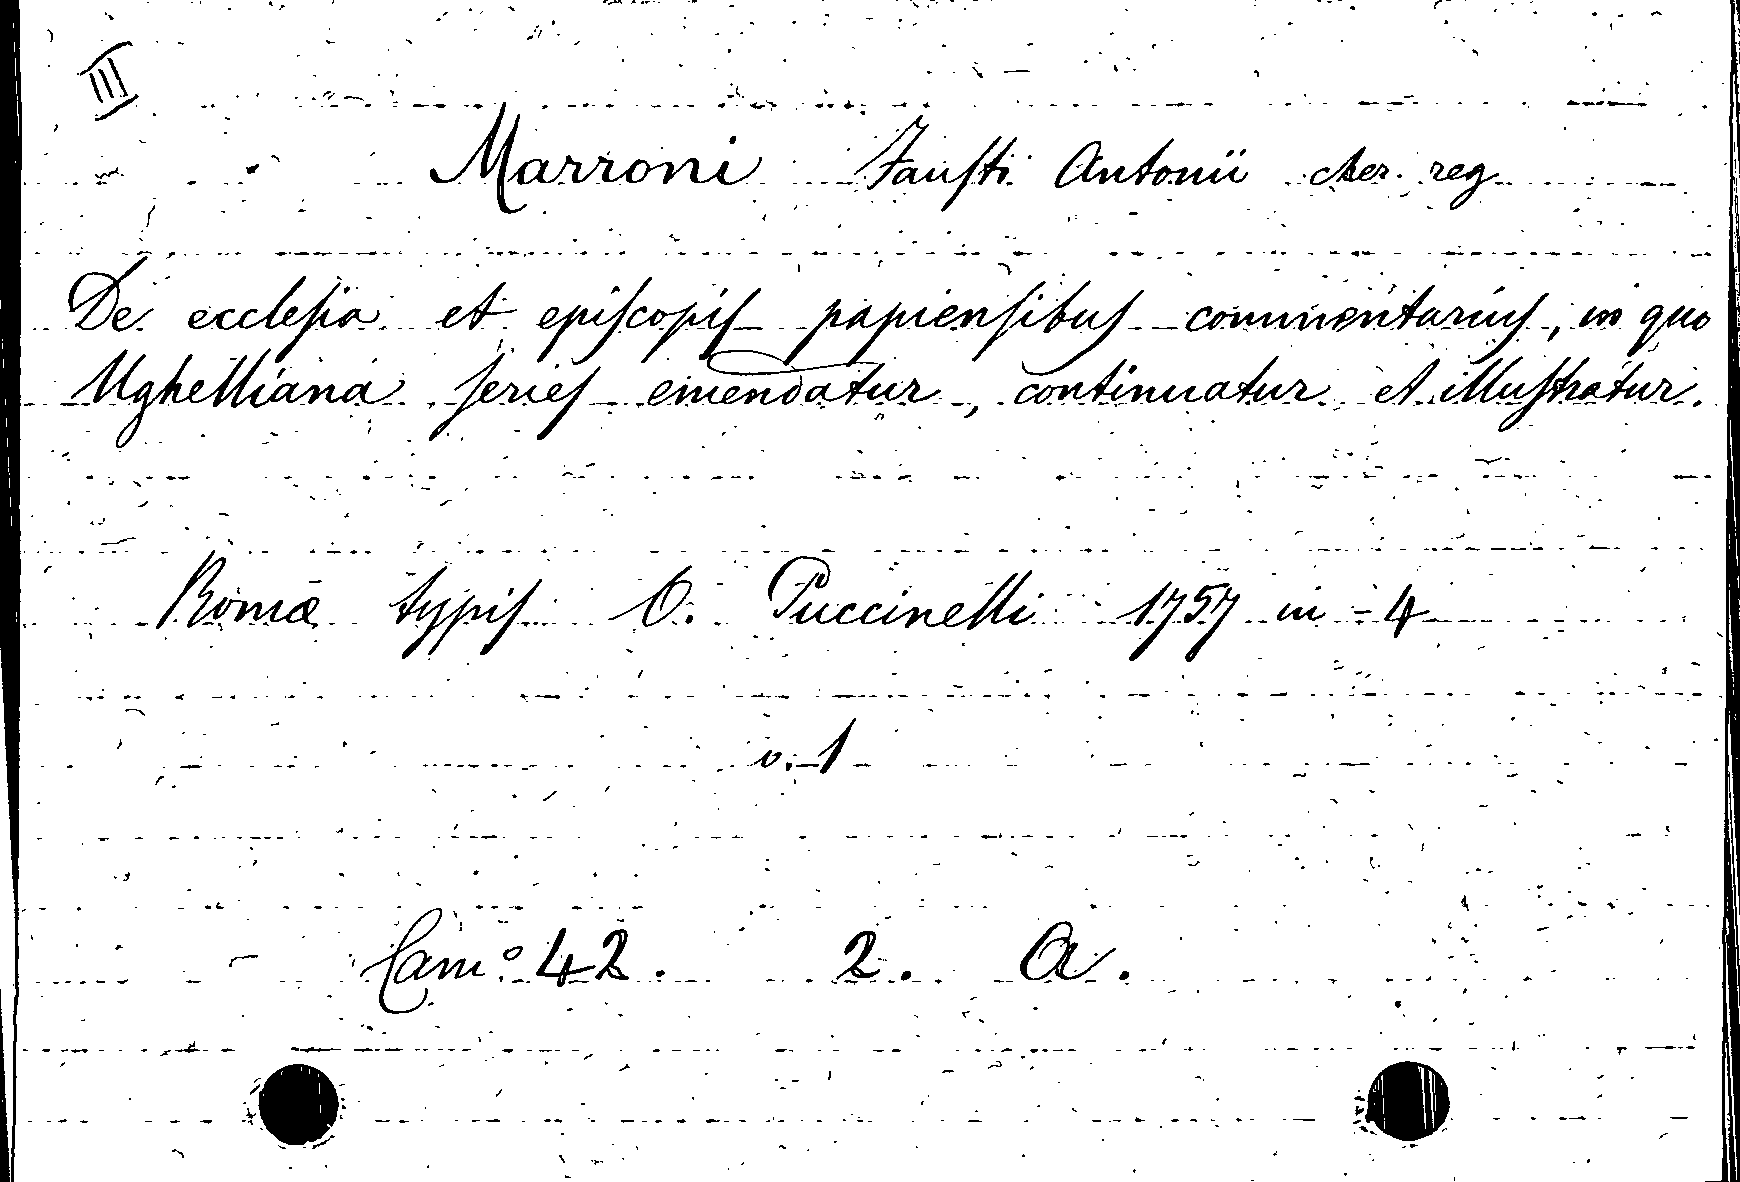 III
Marroni Fausti Antonii cler. reg
De ecclesia et episcopis papiensibus commentarius, in quo
Ughelliana series emendatur, continuatur et illustratur.
Romæ typis O. Puccinelli 1757 in - 4
v. 1
Cam.º 42. 2. A.